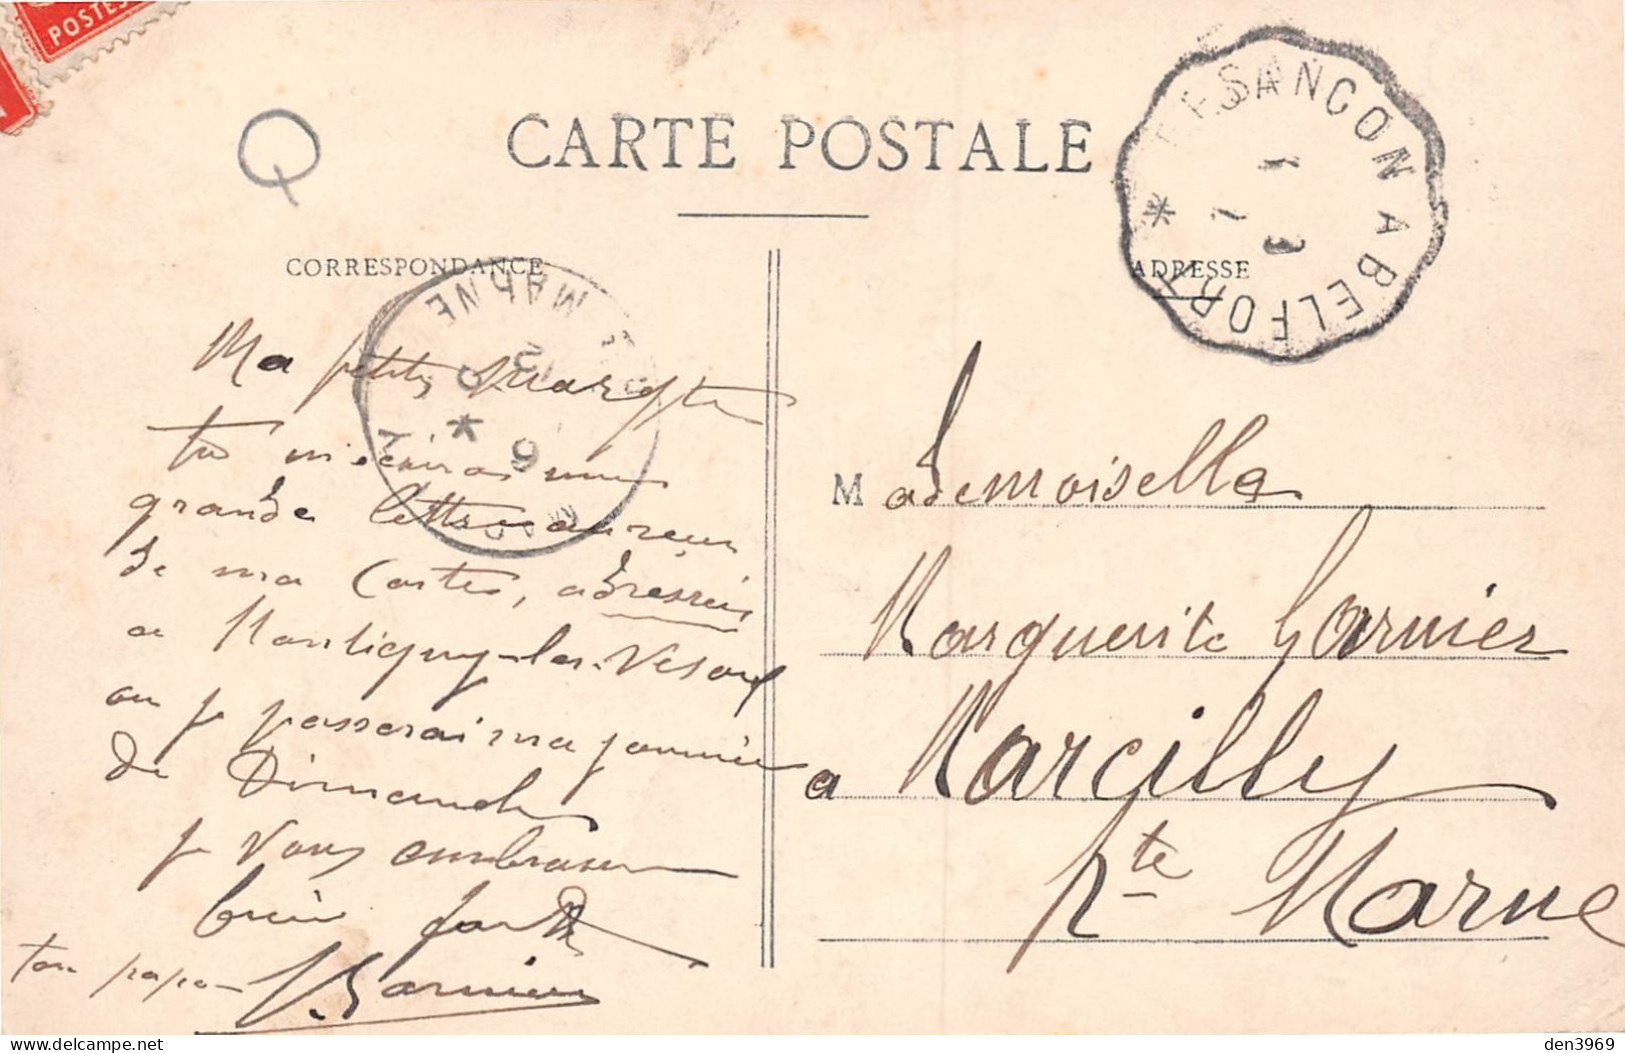 POSTES
Q
CARTE POSTALE
BESANCON A BELFORT *
CORRESPONDANCE
ADRESSE
MARNE
Ma petite Margte
tu m'écriras une
grande lettre au reçu
de ma Carte, adressée
a Montigny-les-Vesoul
ou je passerai ma journée
de Dimanche
je vous embrasse
bien fort
ton papa
Garnier
Mademoiselle
Marguerite Garnier
a Marcilly
Hte Marne
den3969